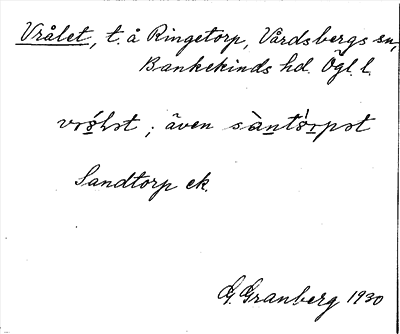 Vrålet, t. å Ringetorp, Vårdsbergs sn,
Bankekinds hd. Ögl. l.
vrólət ; även sàntórpət
Sandtorp ek.
G. Granberg 1930